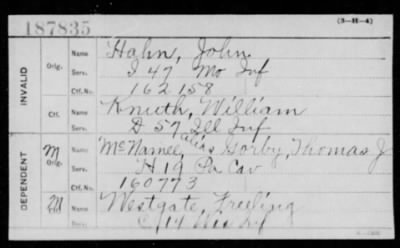 187835
(3-H-4)
INVALID
Orig.
Name Hahn, John
Serv. I 47 Mo Inf
Ctf. No. 162158
Ctf. Name Knuth, William
Serv. D 57 Ill Inf
DEPENDENT
M
Orig.
Name McNamee, alias Gorby, Thomas J
Serv. H 19 Pa Cav
160773
M
Name Westgate, Freeling
Serv. C 14 Wis Inf